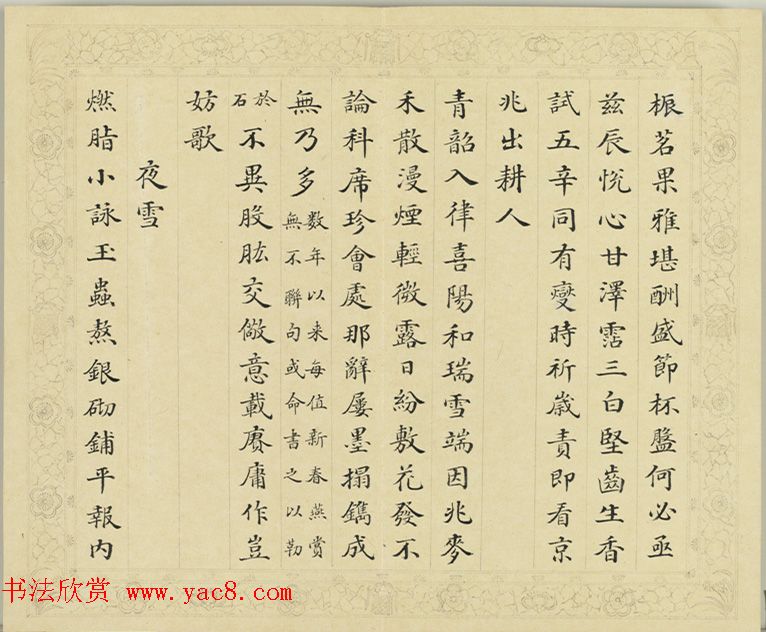 桭茗果雅堪酬盛節杯盤何必亟
茲辰悅心甘澤霑三白堅齒生香
試五辛同有燮時祈歲責即看京
兆出耕人
青韶入律喜陽和瑞雪端因兆麥
禾散漫煙輕微露日紛敷花發不
論科席珍會處那辭屢墨搨鐫成
無乃多數年以来每值新春燕賞無不聯句或命書之以勒
於石不異股肱交儆意載賡庸作豈
妨歌
夜雪
燃脂小詠玉蟲熬銀砌鋪平報內
书法欣赏 www.yac8.com